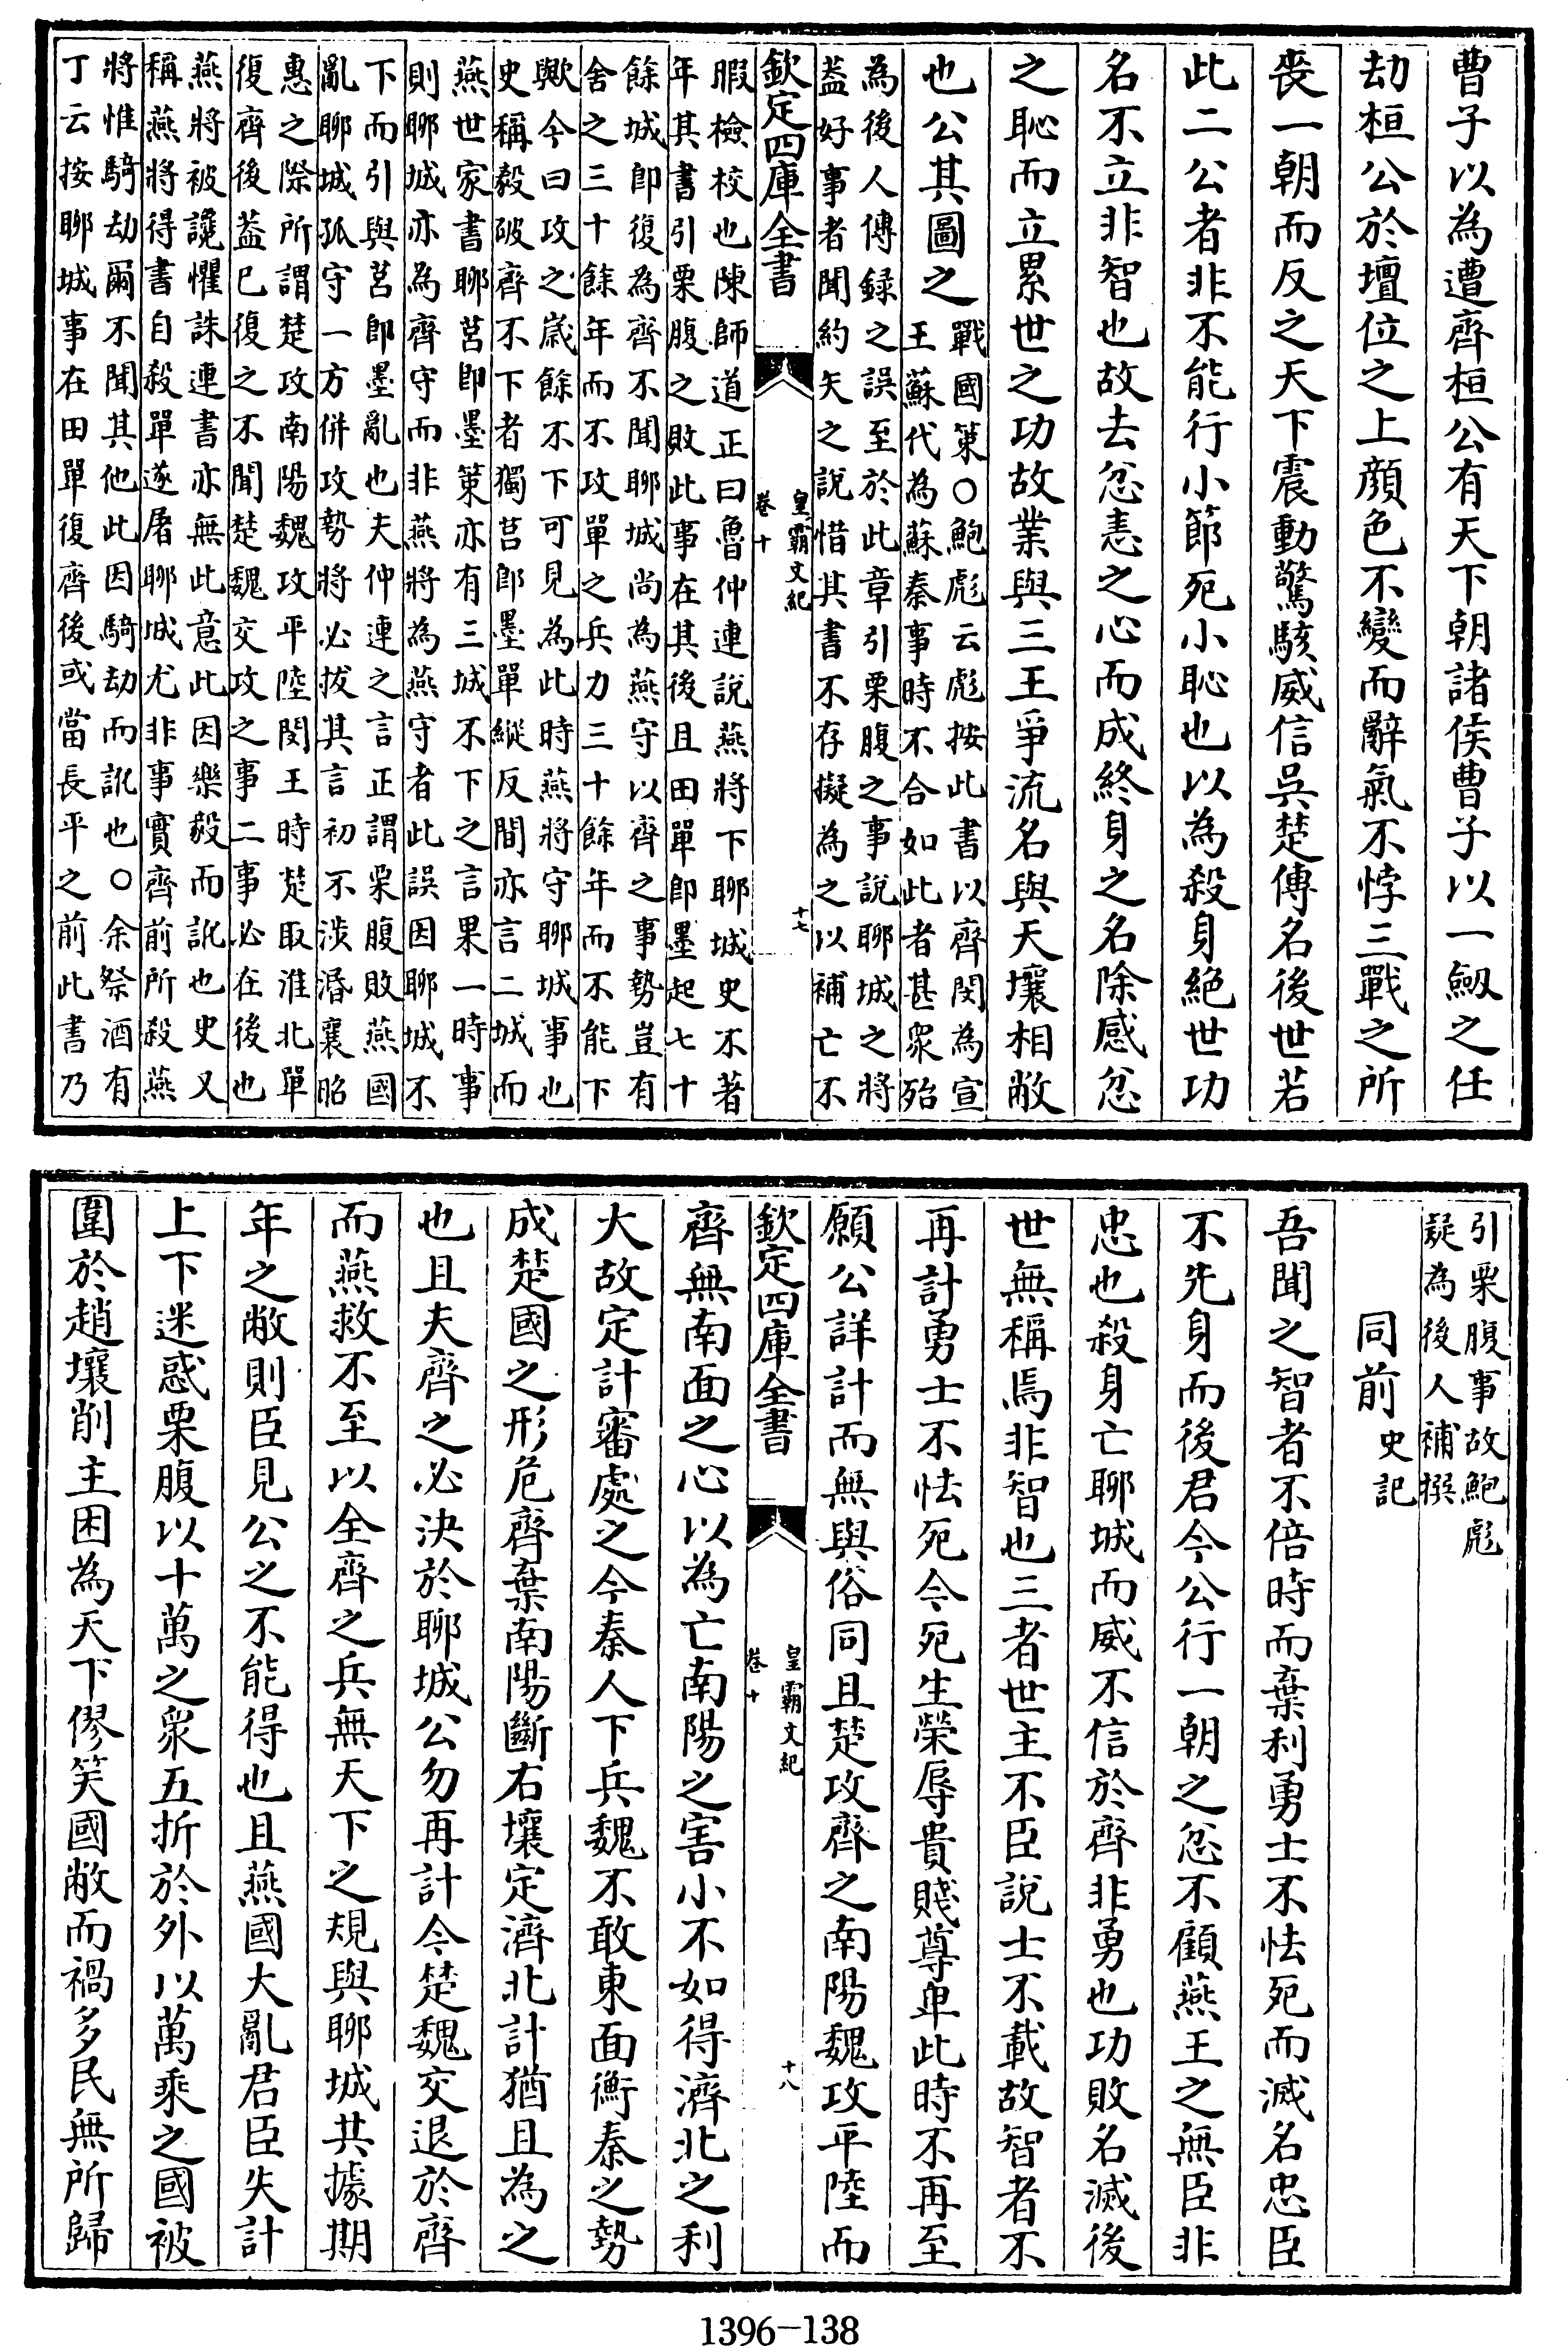 曹子以為遭齊桓公有天下朝諸侯曹子以一劔之任
劫桓公於壇位之上顔色不變而辭氣不悖三戰之所
喪一朝而反之天下震動驚駭威信吳楚傳名後世若
此二公者非不能行小節死小恥也以為殺身絶世功
名不立非智也故去忿恚之心而成終身之名除感忿
之恥而立累世之功故業與三王爭流名與天壤相敝
也公其圖之
戰國策○鮑彪云彪按此書以齊閔為宣
王蘇代為蘇秦事時不合如此者甚衆殆
為後人傳録之誤至於此章引栗腹之事說聊城之將
葢好事者聞約矢之說惜其書不存擬為之以補亡不
欽定四庫全書
皇霸文紀
卷十
十七
暇檢校也陳師道正曰魯仲連說燕將下聊城史不著
年其書引栗腹之敗此事在其後且田單即墨起七十
餘城即復為齊不聞聊城尚為燕守以齊之事勢豈有
舍之三十餘年而不攻單之兵力三十餘年而不能下
歟今曰攻之歲餘不下可見為此時燕將守聊城事也
史稱毅破齊不下者獨莒即墨單縱反間亦言二城而
燕世家書聊莒即墨策亦有三城不下之言果一時事
則聊城亦為齊守而非燕將為燕守者此誤因聊城不
下而引與莒即墨亂也夫仲連之言正謂栗腹敗燕國
亂聊城孤守一方併攻勢將必拔其言初不涉湣襄昭
惠之際所謂楚攻南陽魏攻平陸閔王時楚取淮北單
復齊後葢已復之不聞楚魏交攻之事二事必在後也
燕將被讒懼誅連書亦無此意此因樂毅而訛也史又
稱燕將得書自殺單遂屠聊城尤非事實齊前所殺燕
將惟騎劫爾不聞其他此因騎劫而訛也○余祭酒有
丁云按聊城事在田單復齊後或當長平之前此書乃
引栗腹事故鮑彪
疑為後人補撰
同前史記
吾聞之智者不倍時而棄利勇士不怯死而滅名忠臣
不先身而後君今公行一朝之忿不顧燕王之無臣非
忠也殺身亡聊城而威不信於齊非勇也功敗名滅後
世無稱焉非智也三者世主不臣說士不載故智者不
再計勇士不怯死今死生榮辱貴賤尊卑此時不再至
願公詳計而無與俗同且楚攻齊之南陽魏攻平陸而
欽定四庫全書
皇霸文紀
卷十
十八
齊無南面之心以為亡南陽之害小不如得濟北之利
大故定計審處之今秦人下兵魏不敢東面衡秦之勢
成楚國之形危齊棄南陽斷右壤定濟北計猶且為之
也且夫齊之必決於聊城公勿再計今楚魏交退於齊
而燕救不至以全齊之兵無天下之規與聊城共據期
年之敝則臣見公之不能得也且燕國大亂君臣失計
上下迷惑栗腹以十萬之衆五折於外以萬乘之國被
圍於趙壤削主困為天下僇笑國敝而禍多民無所歸
1396-138